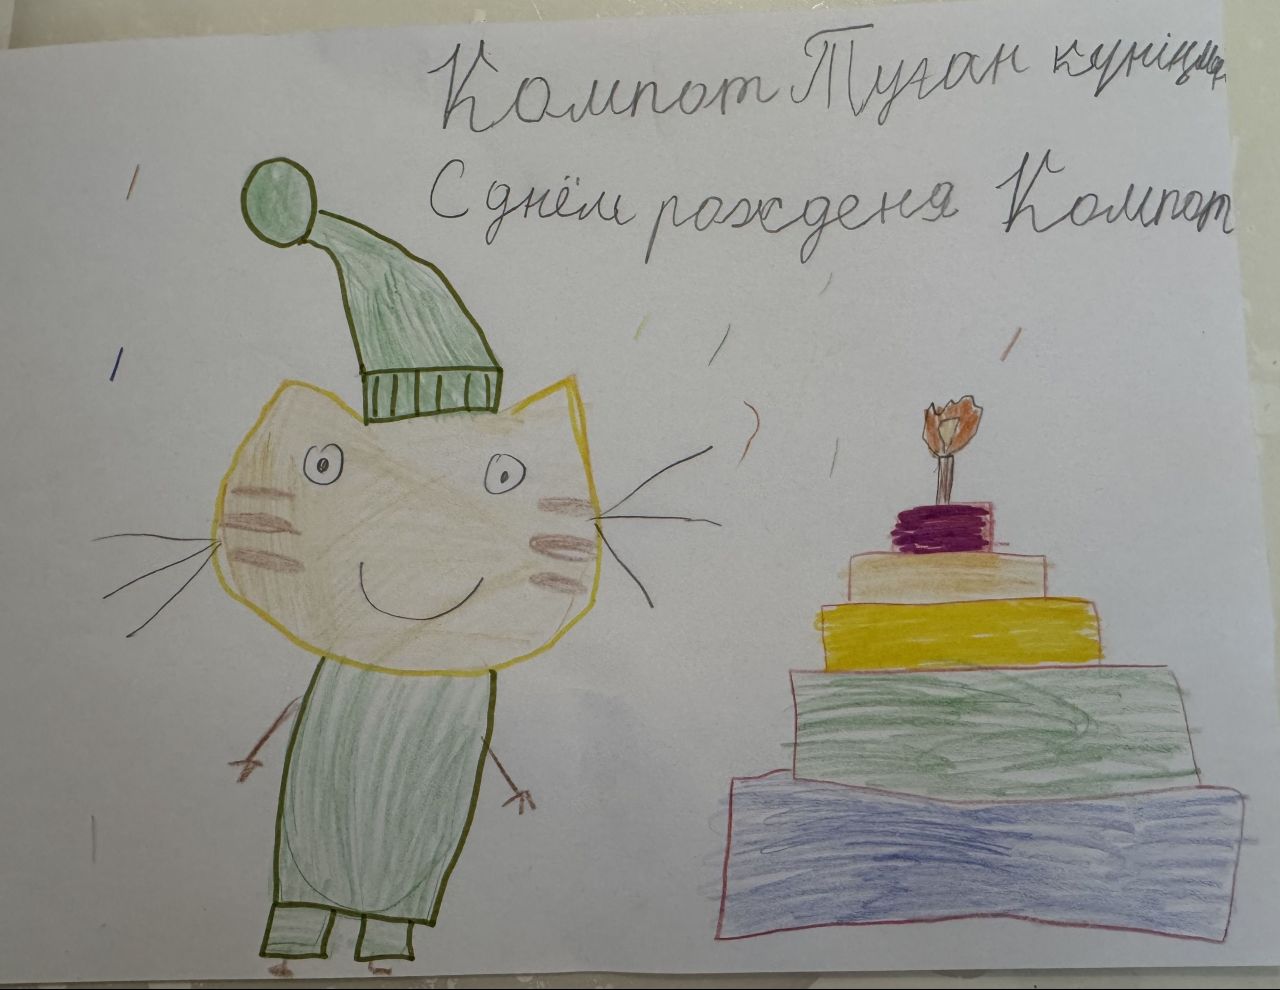 Компот Туған күніңмен
С днём рожденя Компот